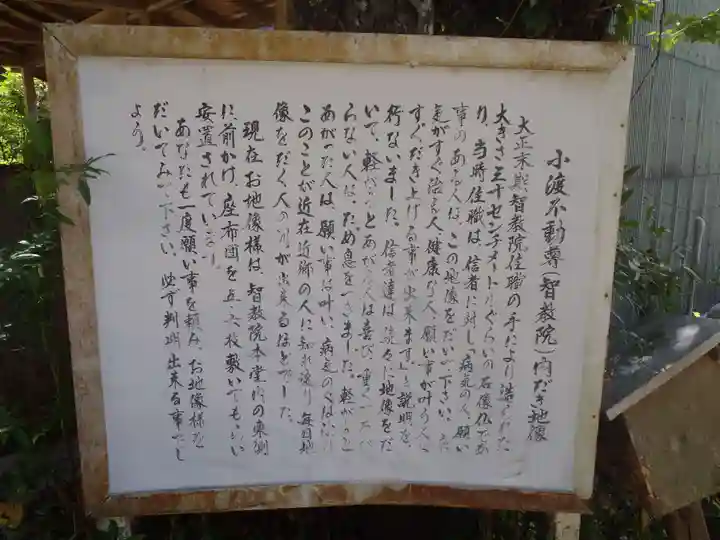 小渡不動尊(智教院)内だき地像
大正末期智教院住職の手により造られた
大きさ三十センチメートルぐらいの石像仏であ
り、当時住職は信者に対し、病気の人、願い
事のある人は、この地像をだいて下さい。
気がすぐ治る人、健康な人、願い事が叶う人は
すぐだき上げる事が出来ます」と説明を
行ないました。信者達は次々に地像をだ
いて、軽がるとあがる人は喜び、重くてあが
らない人は、ため息をつきました。軽がると
あがった人は願い事は叶い、病気のくはなおり
このことが近在近郷の人に知れ渡り毎日地
像をだく人の列が出来るほどでした。
現在お地像様は、智教院本堂内の東側
に前かけ、座布団を五、六枚敷いてもらい
安置されています。
あなたも一度願い事を頼み、お地像様を
だいてみて下さい。必ず判断出来る事でし
よう。